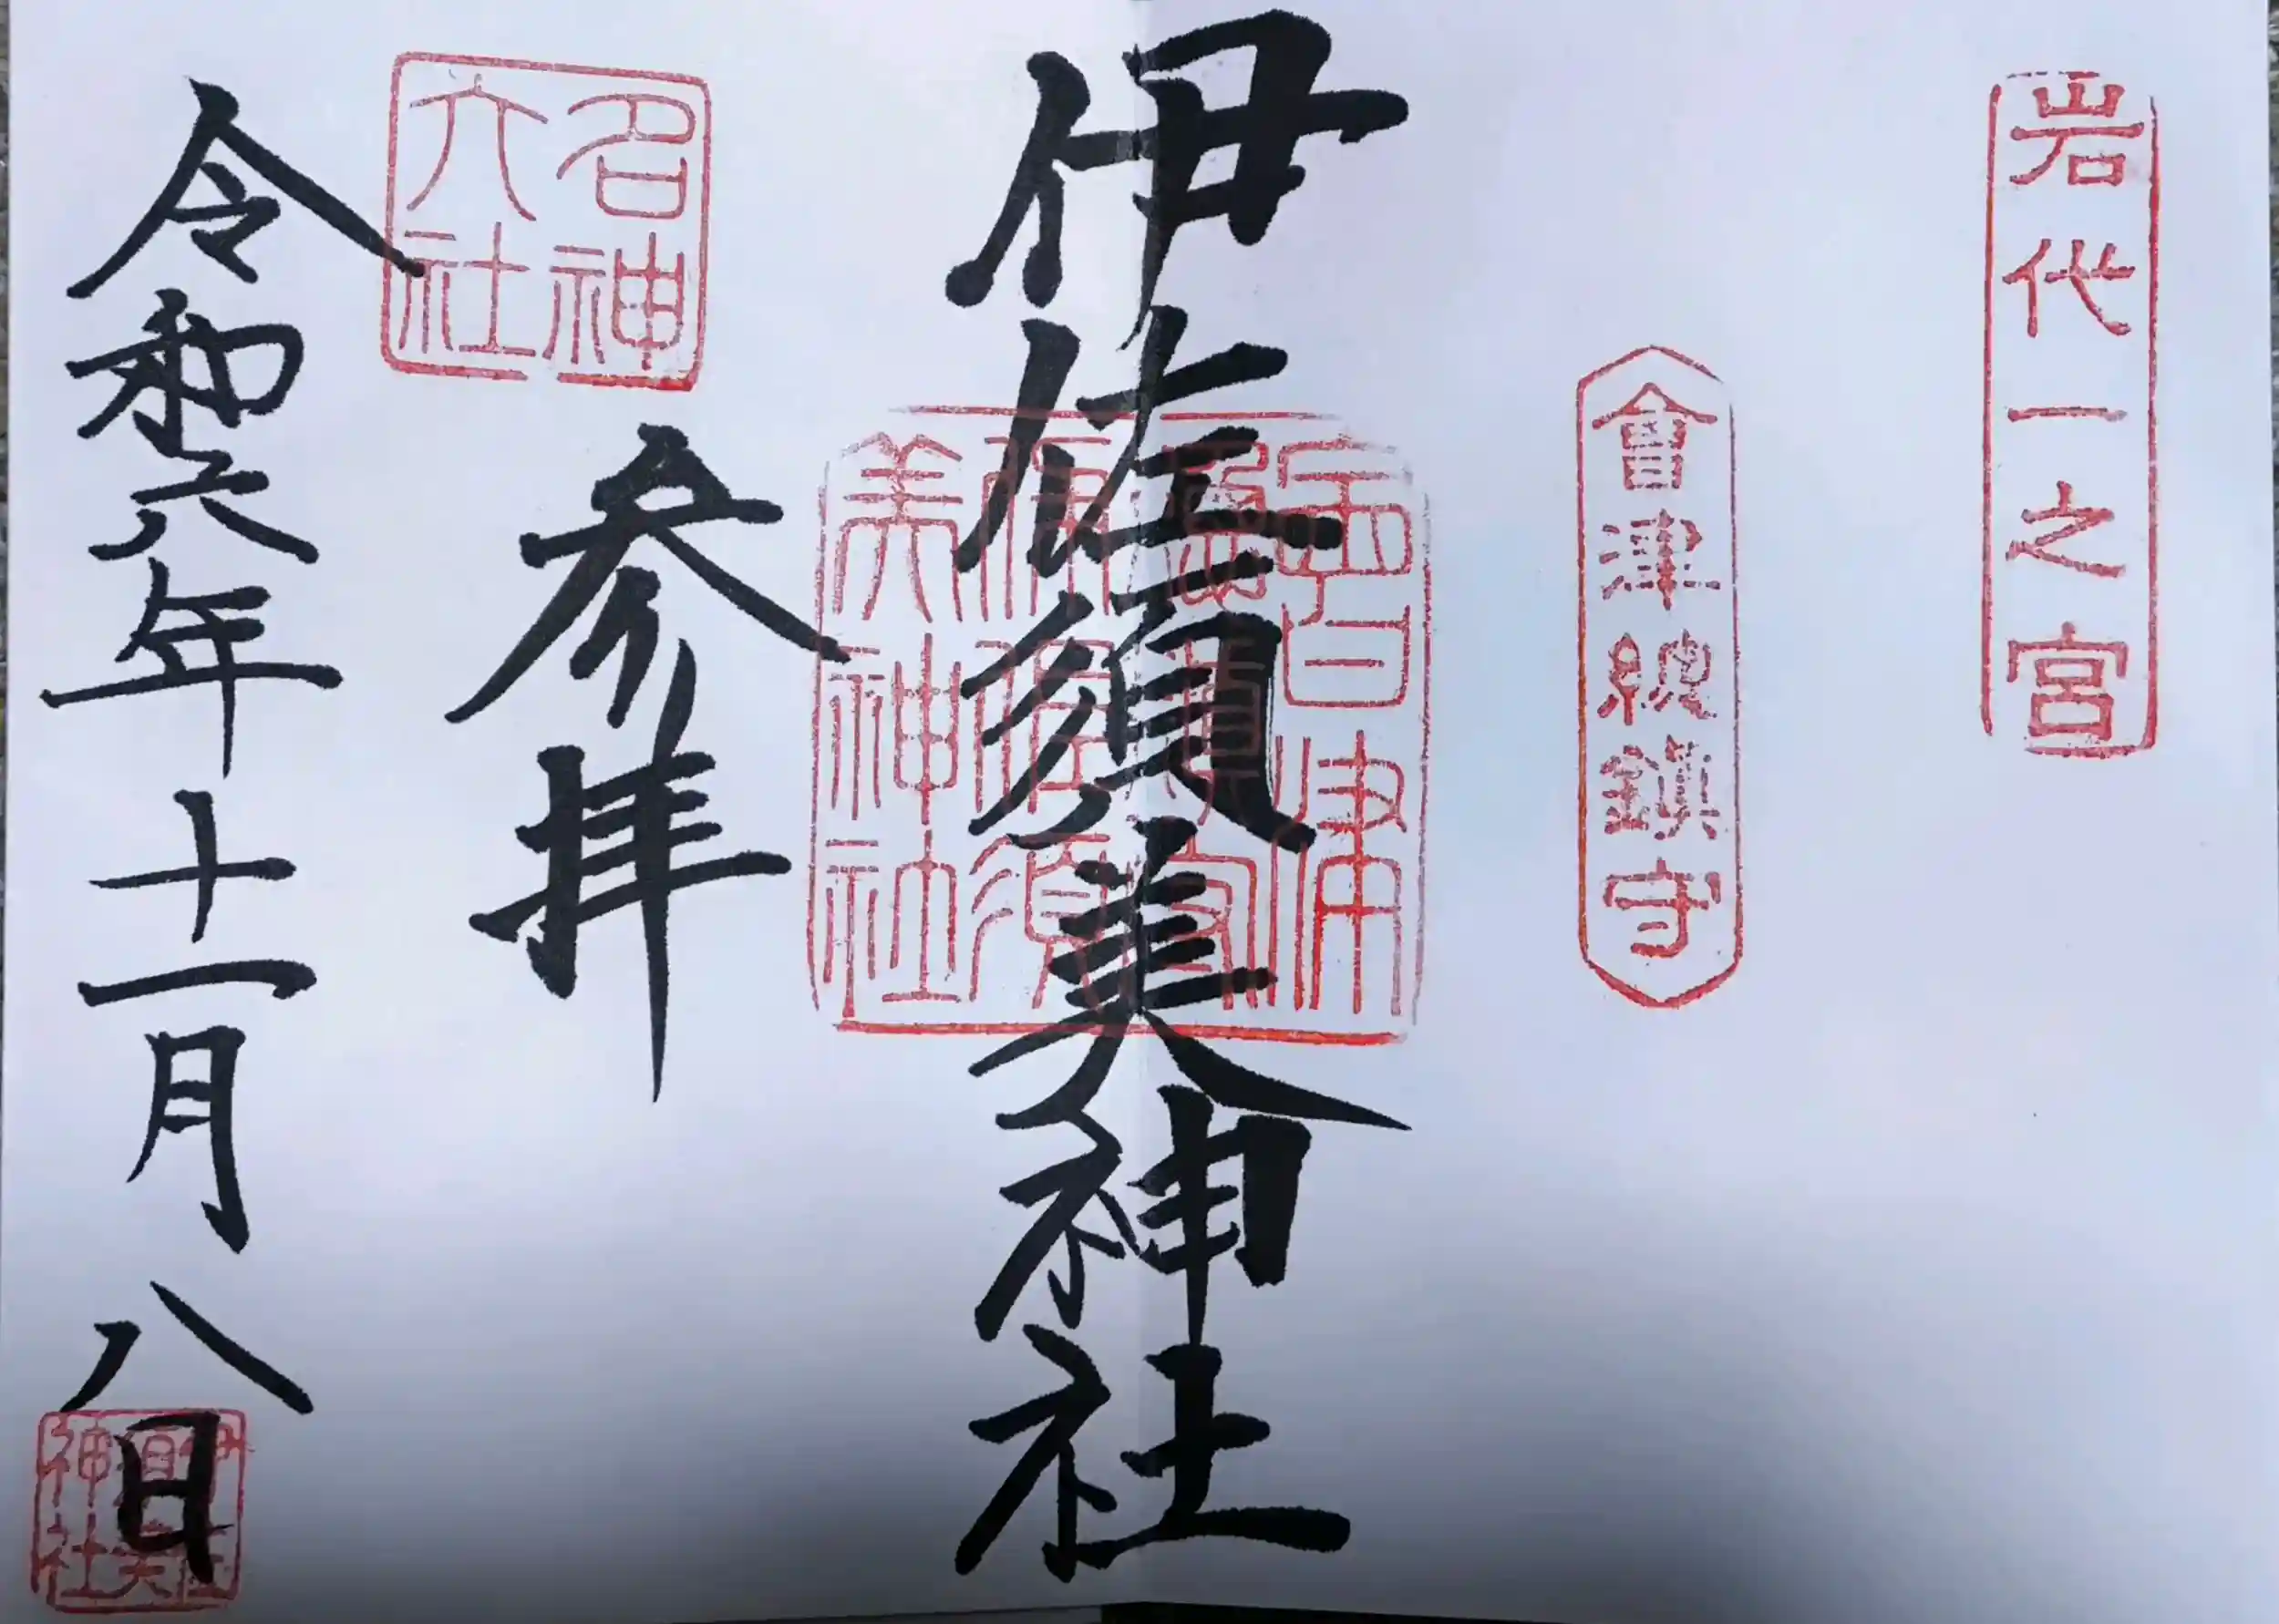 岩代一之宮
會津總鎮守
伊佐須美神社
會津
總鎮守
伊佐須
美神社
名神
大社
参拝
令和六年十一月八日
伊佐
須美
神社